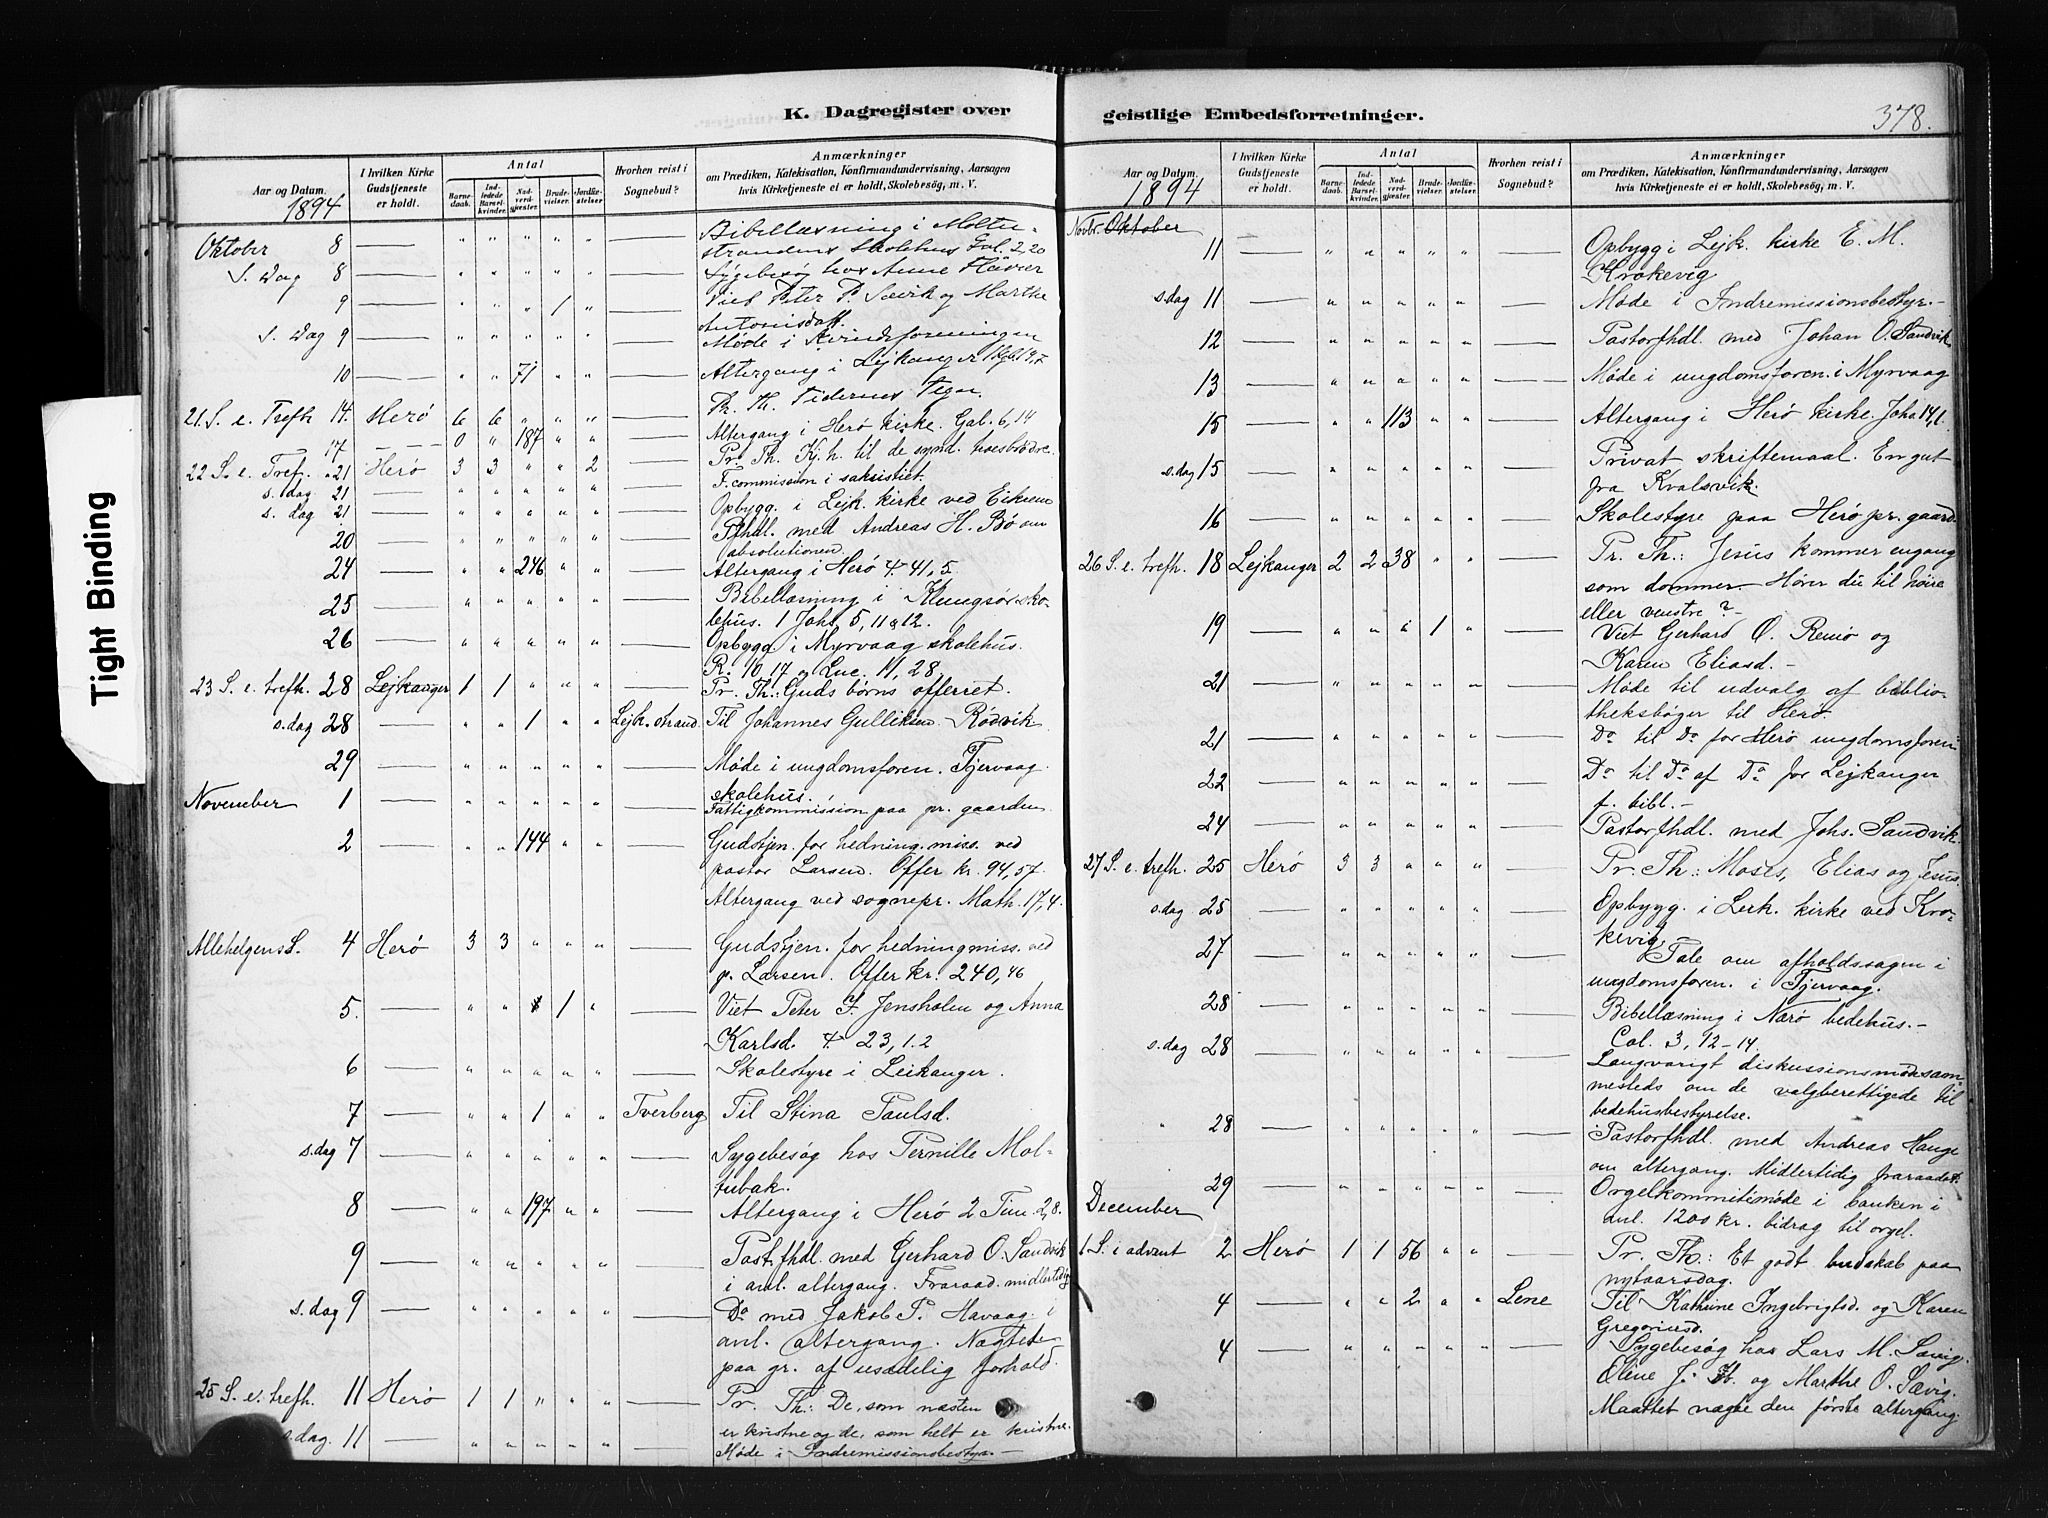 K. Dagregister over
Aar og Datum.
1894
I hvilken Kirke Gudstjeneste er holdt.
Antal
Barnedaab.
Indledede Barselkvinder.
Nadverdgjester.
Brudevielser.
Jordfæstelser.
Hvorhen reist i Sognebud?
Anmærkninger
om Prædiken, Katekisation, Konfirmandundervisning, Aarsagen
hvis Kirketjeneste ei er holdt, Skolebesøg, m. V.
Oktober 8 — " " " " " — Bibellæsning i Moltu-
strandens Skolehus Gal. 2,20
S. Dag 8 — " " " " " — Sygebesøg hos Anne Håvier
9 — " " " 1 " — Viet Peter P. Sævik og Marthe
Antonisdatt.
S. Dag 9 — " " " " " — Møde i Kvindeforeningen
10 — " " 71 " " — Altergang i Lejkanger 1 Kgb. 19,7
Pr. Th. Tidernes Tegn
21. S. e. Trefh 14. Herø 6 6 " " "
17 — 0 " 187 " " — Altergang i Herø kirke. Gal. 6,14
22 S. e. Tref. 21 Herø 3 3 " " 2 — Pr. Th. Kj. h. til de synd. troesbrødre
s. dag 21 — " " " " " — F. commission i sakristiet.
s. dag 21 — " " " " " — Opbygg. i Lejk. kirke ved Eiksem
20 — " " " " " — Pfhdl. med Andreas H. Bø om
absolutionen.
24 — " " 246 " " — Altergang i Herø 4. 41, 5.
25 — " " " " " — Bibellæsning i Klungsør sko-
lehus. 1 Joh. 5, 11 & 12.
26 — " " " " " — Opbygg i Myrvaag skolehus.
R. 10. 17 og Luc. 11, 28.
23 S. e. trefh. 28 Lejkanger 1 1 " " " — Pr. Th.: Guds børns offerret.
s. dag 28 — " " 1 " " Lejk. strand Til Johannes Gulliksen Rødvik
29 — " " " " " — Møde i ungdomsforen. Tjervaag
skolehus.
November 1 — " " " " " — Fattigkommission paa pr. gaarden
2 — " " 144 " " — Gudstjen. for hedning. miss. ved
pastor Larsen. Offer kr. 94,57.
Altergang ved sognepr. Math. 17,4.
Allehelgens S. 4 Herø 3 3 " " " — Gudstjen. for hedningmiss. ved
p. Larsen. Offer kr. 240,46
5. — " " " 1 " — Viet Peter I. Jensholm og Anna
Karlsd. 4. 23, 1.2
6 — " " " " " — Skolestyre i Leikanger.
7 — " " 1 " " Tverberg Til Stina Paulsd.
s. dag 7 — " " " " " — Sygebesøg hos Pernille Mol-
tubak.
8 — " " 197 " " — Altergang i Herø 2 Tim. 2,8.
9 — " " " " " — Past. fhdl. med Gerhard O. Sandvik
i anl. altergang. Fraraad. midlertidig
s. dag 9 — " " " " " — Do med Jakob P. Havaag i
anl. altergang. Nægtet
paa gr. af usædelig forhold.
25 S. e. trefh. 11 Herø 1 1 " " " — Pr. Th: De, som næsten
er kristne og de, som helt er kristne.
s. dag. 11 — " " " " " — Møde i Indremissionsbestyr. —
geistlige Embedsforretninger.
378.
Aar og Datum.
1894
I hvilken Kirke Gudstjeneste er holdt.
Antal
Barnedaab.
Indledede Barselkvinder.
Nadverdgjester.
Brudevielser.
Jordfæstelser.
Hvorhen reist i Sognebud?
Anmærkninger
om Prædiken, Katekisation, Konfirmandundervisning, Aarsagen
hvis Kirketjeneste ei er holdt, Skolebesøg, m. V.
Novbr. Oktober
11 — " " " " " — Opbygg i Lejk. kirke E. M.
Krokevig
s. dag 11 — " " " " " — Møde i Indremissionsbestyr. —
12 — " " " " " — Pastorfhdl. med Johan O. Sandvik
13 — " " " " " — Møde i ungdomsforen. i Myrvaag
15 — " " 113 " " — Altergang i Herø kirke. Joh. 14,1.
s. dag 15 — " " " " " — Privat skriftemaal. En gut
fra Kvalsvik.
16 — " " " " " — Skolestyre paa Herø pr. gaard.
26 S. e. trefh. 18 Lejkanger 2 2 38 " " — Pr. Th.: Jesus kommer engang
som dommer. Hører du til høire
eller venstre? —
19 — " " " 1 " — Viet Gerhard O. Remø og
Karen Eliasd. —
21 — " " " " " — Møde til udvalg af biblio-
theksbøger til Herø.
21 — " " " " " — Do til Do for Herø ungdomsforen.
22 — " " " " " — Do til Do af Do for Lejkanger
f. bibl. —
24 — " " " " " — Pastorfhdl. med Johs. Sandvik.
27 S. e. trefh. 25 Herø 3 3 " " " — Pr. Th.: Moses, Elias og Jesus.
s. dag 25 — " " " " " — Opbygg. i Leik. kirke ved Kro-
kevig. —
27 — " " " " " — Tale om afholdssagen i
ungdomsforen. i Tjervaag.
28 — " " " " " — Bibellæsning i Nærø bedehus. —
Col. 3, 12–14.
s. dag 28 — " " " " " — Langvarigt diskussionsmøde sam-
mesteds om de valgberettigede til
bedehusbestyrelse.
" 28 — " " " " " — Pastorfhdl. med Andreas Hauge
om altergang. Midlertidig fraraadet.
29 — " " " " " — Orgelkommitemøde i banken i
anl. 1200 kr. bidrag til orgel.
December
1 S. i advent 2 Herø 1 1 56 " " — Pr. Th.: Et godt budskab paa
nytaarsdag.
4 — " " 2 " " Lene Til Kathrine Ingebrigtsd. og Karen
Gregoriusd.
4 — " " " " " — Sygebesøg hos Lars M. Sævig.
Oline J. H. og Marthe O. Sævig.
Maattet nægte den første altergang.
Tight Binding